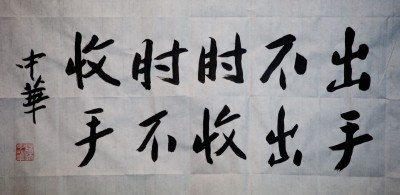 出手
不出
时收
时不
收手
華